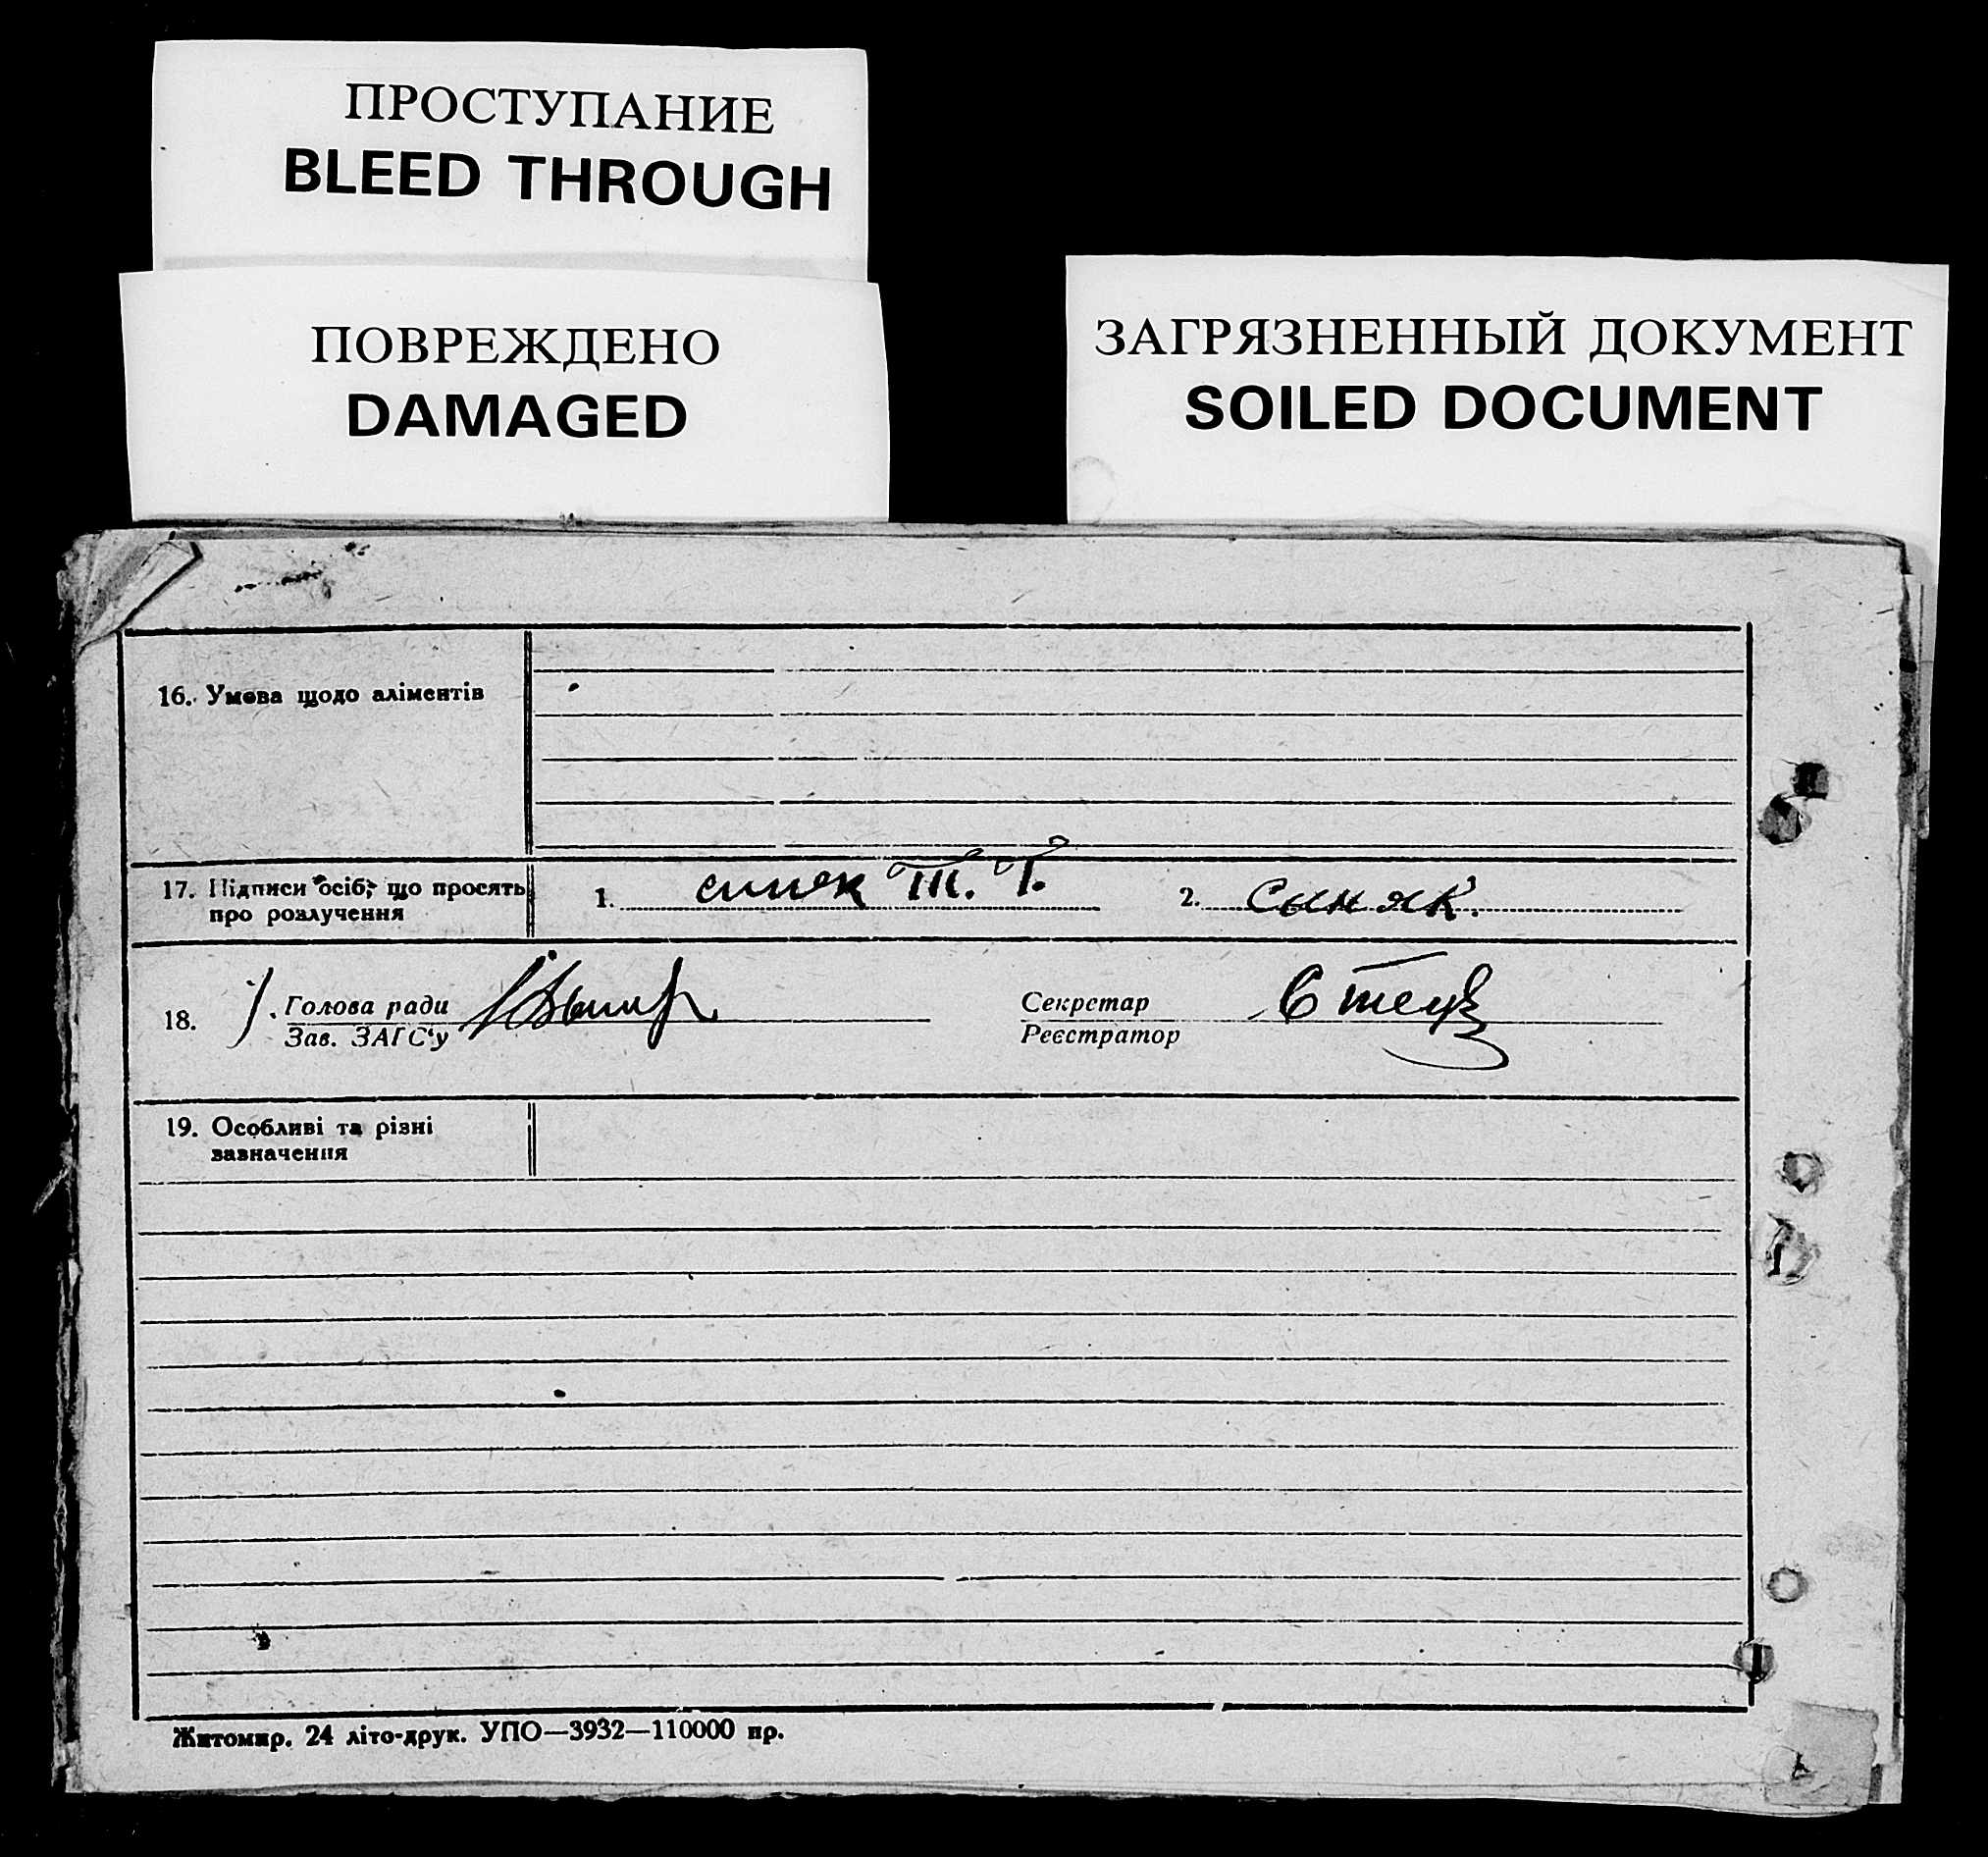 ПРОСТУПАНИЕ
BLEED THROUGH
ПОВРЕЖДЕНО
DAMAGED
ЗАГРЯЗНЕННЫЙ ДОКУМЕНТ
SOILED DOCUMENT
16. Умова щодо аліментів
17. Підписи осіб, що просять
про розлучення
1. Т. Т. 2. Сыняк.
18. Голова ради
Зав. ЗАГС'у
Секретар
Реєстратор
19. Особливі та різні
зазначення
Житомир. 24 літо-друк. УПО—3932—110000 пр.